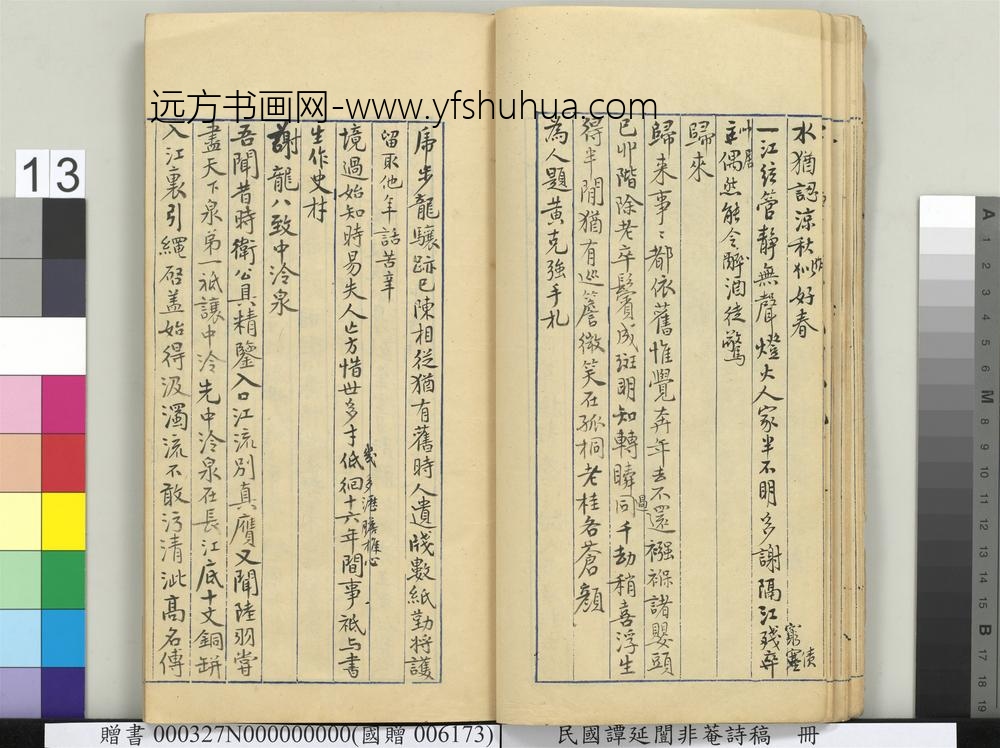 远方书画网-www.yfshuhua.com
水猶認涼秋似好春
一江弦管靜無聲燈火人家半不明多謝隔江殘
偶然能令醉酒徒驚
歸來
歸來事々都依舊惟覺奔年去不還襁褓諸嬰頭
已卯階除老卒鬢成斑明知轉瞬同千劫稍喜浮生
得半閒猶有巡簷微笑在孤桐老桂各蒼顏
為人題黃克強手札
虎步龍驤跡已陳相從猶有舊時人遺牋數紙勤將護
留取他年話苦辛
境過始知時易失人亡方惜世多才低徊十六年間事祇與書
生作史材
謝龍八致中泠泉
吾聞昔時衛公具精鑒入口江流別真贗又聞陸羽嘗
盡天下泉第一祇讓中泠先中泠泉在長江底十丈銅缾
入江裏引繩啓蓋始得汲濁流不敢污清泚高名傳
13
A 1 2 3 4 5 6 M 8 9 10 11 12 13 14 15 B 17 18 19
贈書 000327N000000000(國贈 006173)
民國譚延闓非菴詩稿 冊